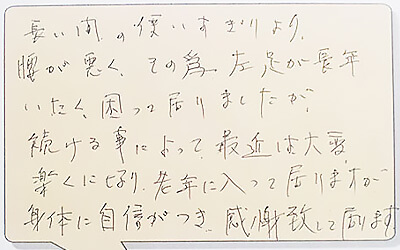 長い間の使いすぎより、
腰が悪く、その為左足が長年
いたく、困って居りましたが、
続ける事によって、最近は大変
楽くになり、老年に入って居りますが
身体に自信がつき、感謝致して居ります